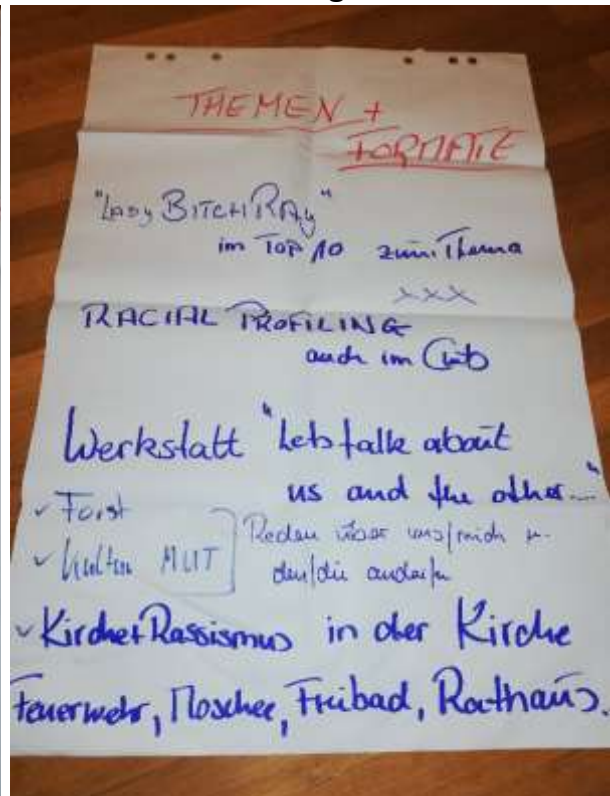 THEMEN +
FORMATE
"Lady BITCH RAy"
im Top 10 zum Thema
xxx
RACIAL PROFILING
auch im Club
Werkstatt "Lets talk about
us and the other..."
✓ Forst
✓ Kultur MUT
Reden über uns/mich u.
den/die andere/n
✓ Kirche + Rassismus in der Kirche
Feuerwehr, Moschee, Freibad, Rathaus.